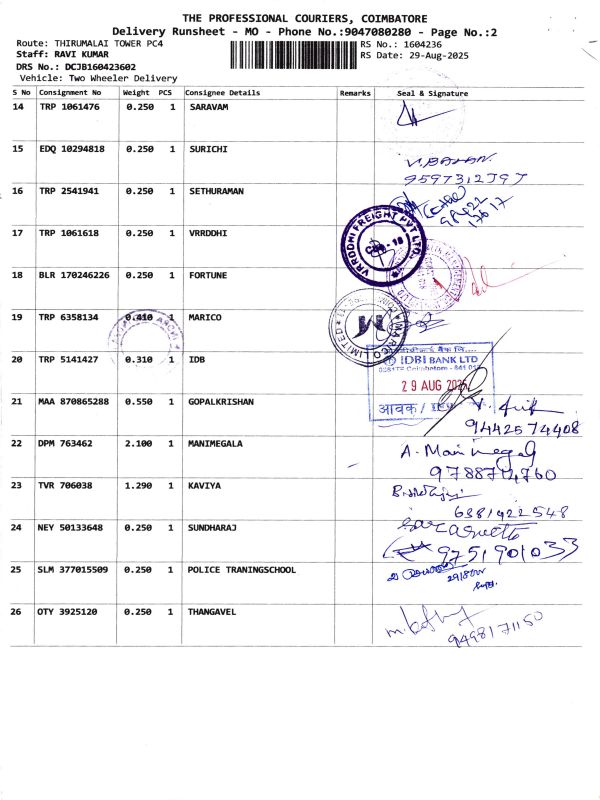 THE PROFESSIONAL COURIERS, COIMBATORE
Delivery Runsheet - MO - Phone No.:9047080280 - Page No.:2
Route: THIRUMALAI TOWER PC4
RS No.: 1604236
Staff: RAVI KUMAR
RS Date: 29-Aug-2025
DRS No.: DCJB160423602
Vehicle: Two Wheeler Delivery
S No Consignment No Weight PCS Consignee Details Remarks Seal & Signature
14 TRP 1061476 0.250 1 SARAVAM
15 EDQ 10294818 0.250 1 SURICHI
16 TRP 2541941 0.250 1 SETHURAMAN
17 TRP 1061618 0.250 1 VRRDDHI
VRRODHI FREIGHT PVT LTD.
CBE-18
18 BLR 170246226 0.250 1 FORTUNE
19 TRP 6358134 0.410 1 MARICO
MARICO LIMITED
M
20 TRP 5141427 0.310 1 IDB
IDBI BANK LTD
29 AUG 2025
आवक /
21 MAA 870865288 0.550 1 GOPALKRISHAN
9442574408
22 DPM 763462 2.100 1 MANIMEGALA
A. Manimegal
23 TVR 706038 1.290 1 KAVIYA
6381922548
24 NEY 50133648 0.250 1 SUNDHARAJ
9751901033
25 SLM 377015509 0.250 1 POLICE TRANINGSCHOOL
26 OTY 3925120 0.250 1 THANGAVEL
9498171150